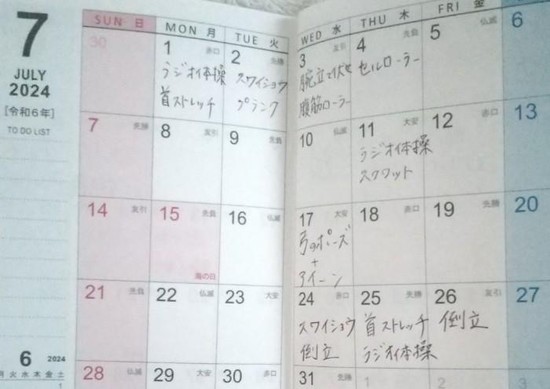 7
JULY
2024
[令和6年]
TO DO LIST
SUN 日
MON 月
TUE 火
WED 水
THU 木
FRI 金
30
1 赤口
ラジオ体操
首ストレッチ
2 先勝
スワイショウ
プランク
3 友引
腕立て伏せ
腹筋ローラー
4 先負
セルローラー
5 仏滅
6
7 先勝
8 友引
9 先負
10 仏滅
11 大安
ラジオ体操
スクワット
12 赤口
13
14 友引
15 先負
海の日
16 仏滅
17 大安
弓のポーズ
+
アイーン
18 赤口
19 先勝
20
21 先負
22 仏滅
23 大安
24 赤口
スワイショウ
倒立
25 先勝
首ストレッチ
ラジオ体操
26 友引
倒立
27
28 仏滅
29 大安
30 赤口
31
1
2
6 2024
月 火 水 木 金 土
1